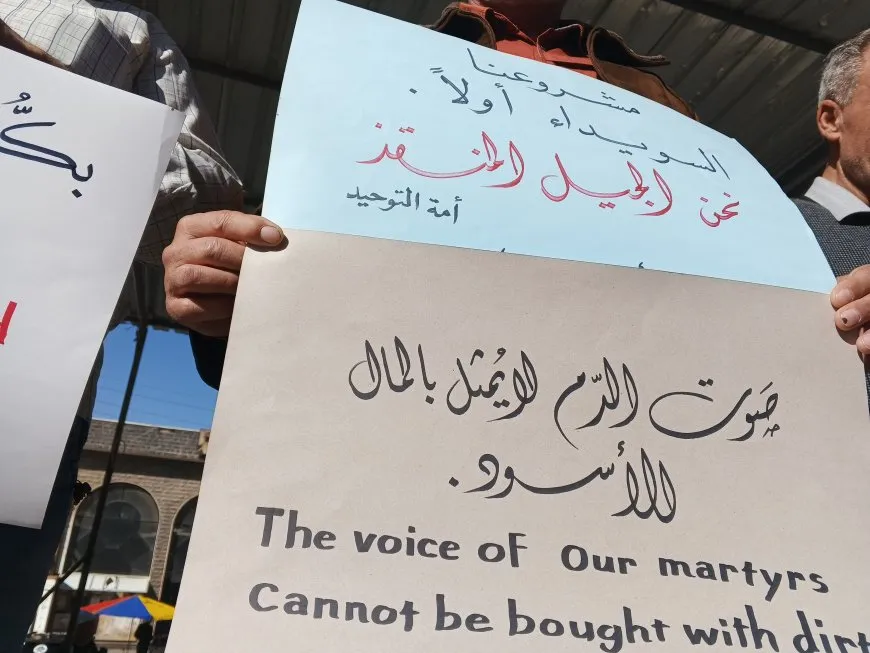 مشروعنا
السويداء أولاً.
نحن الجيل المنقذ
أمة التوحيد
صَوت الدّم لا يُمثل بالمال
الأسود.
The voice of our martyrs
Cannot be bought with dirt